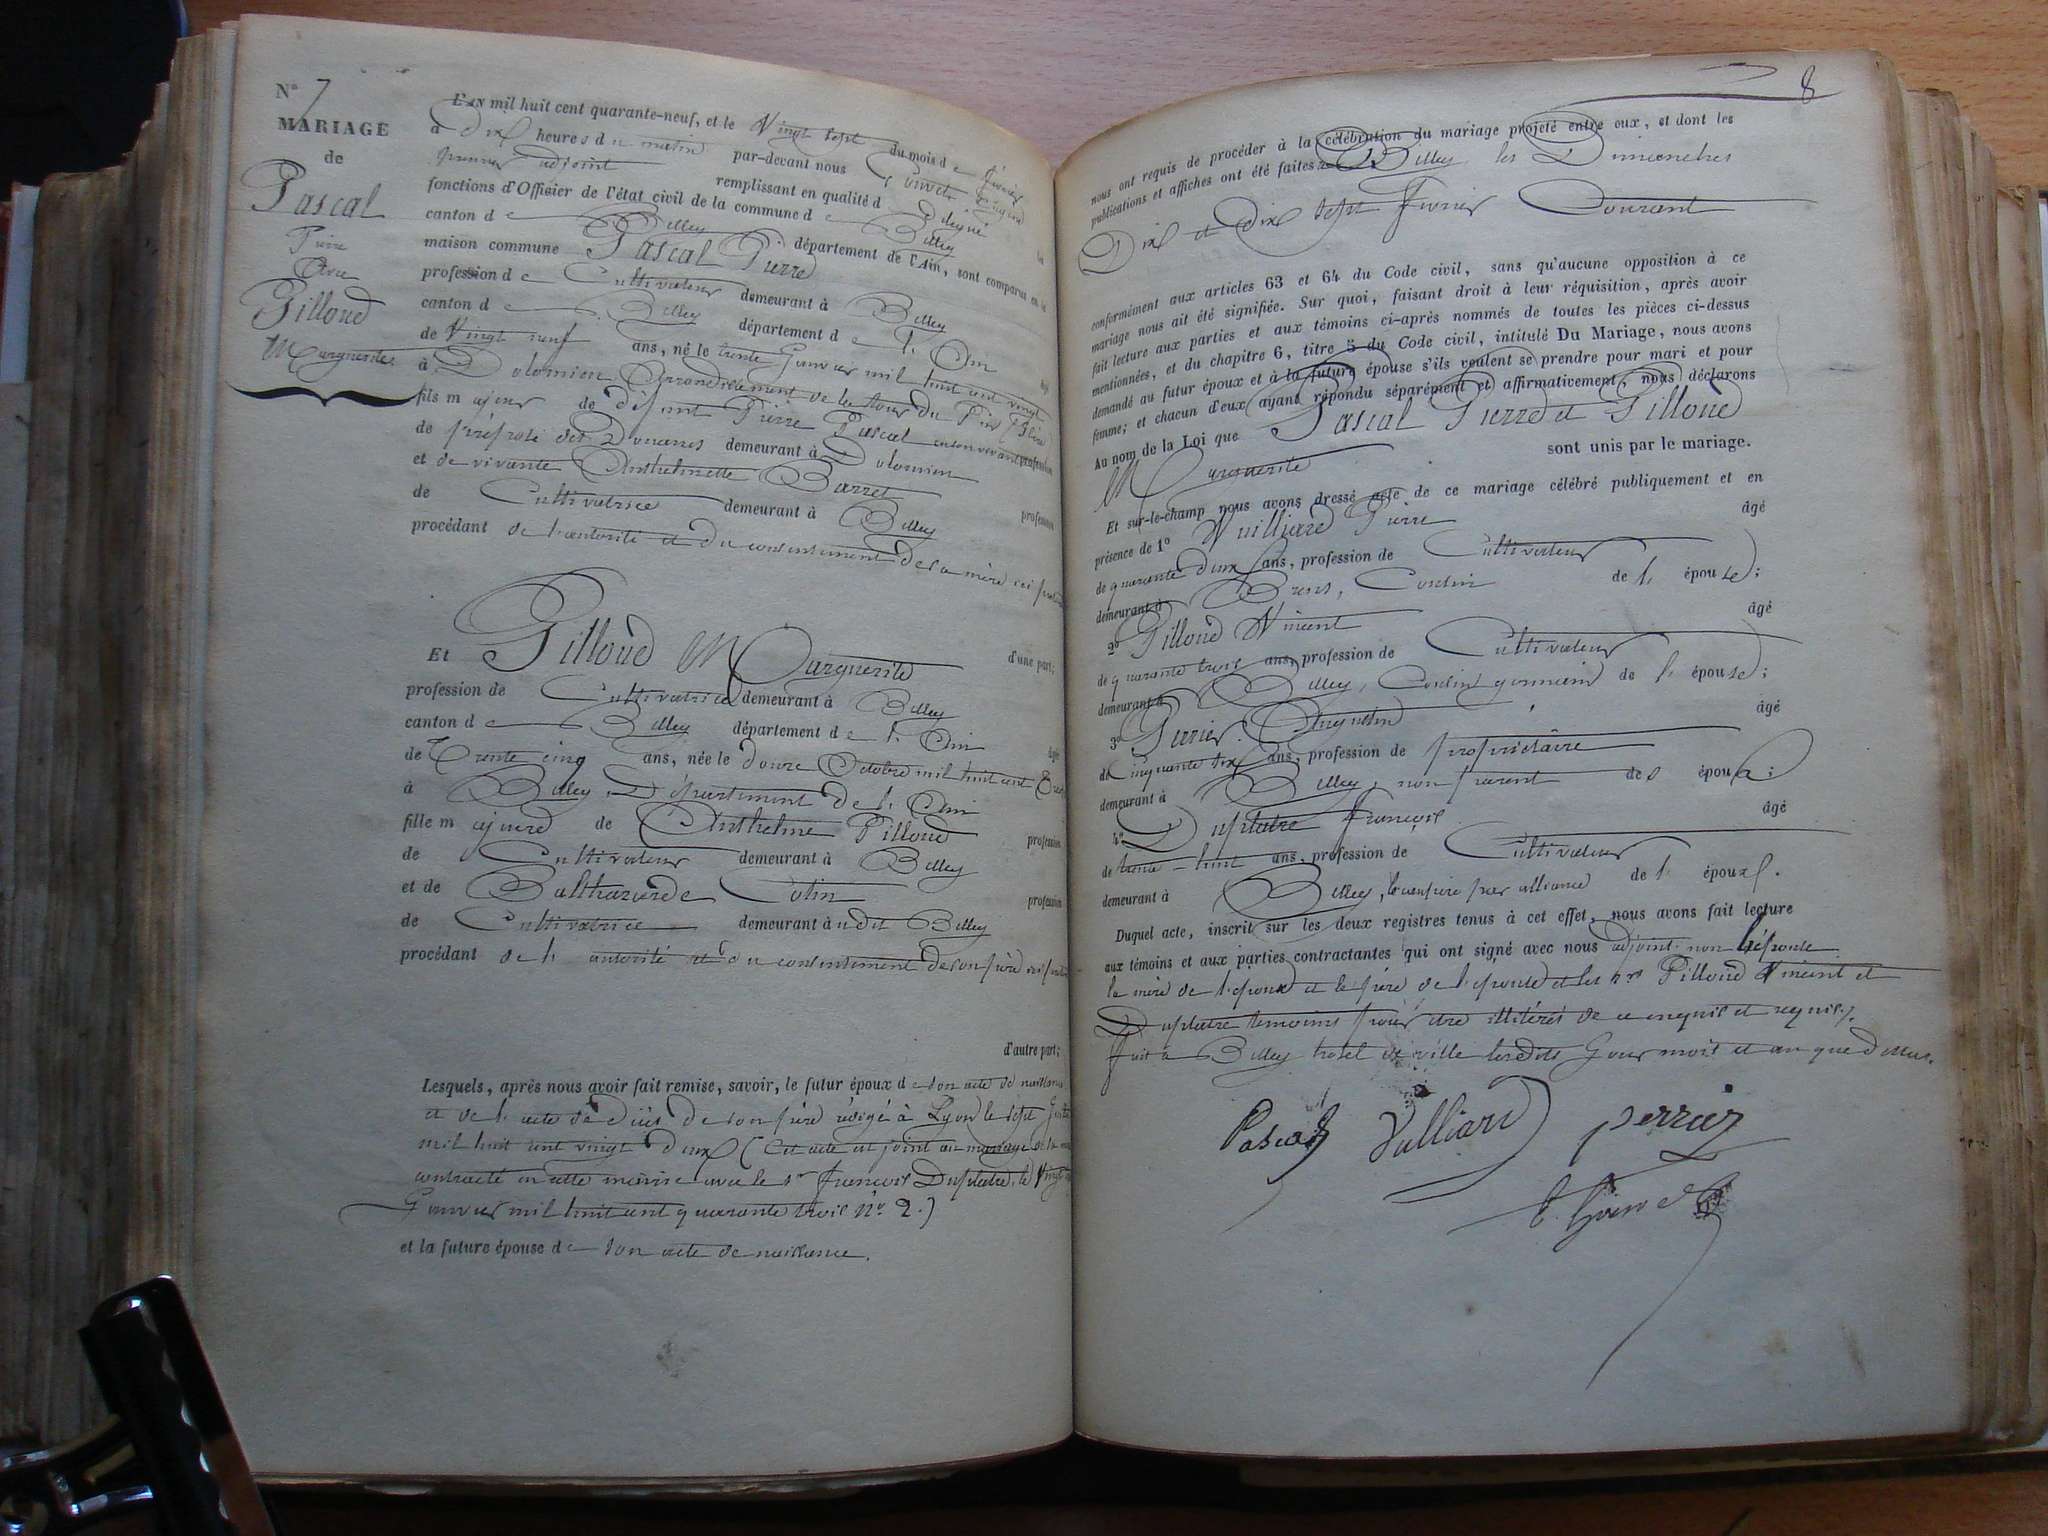 N° 7
MARIAGE
de
Pascal
Pierre
Avec
Pilloud
Marguerite
L'AN mil huit cent quarante-neuf, et le Vingt sept du mois de février
à dix heures du matin par-devant nous
premier adjoint remplissant en qualité de délégué
fonctions d'Officier de l'état civil de la commune de Belley
canton de Belley département de l'Ain, sont comparus en la
maison commune Pascal Pierre
profession de Cultivateur demeurant à Belley
canton de Belley département de l'Ain âgé
de Vingt neuf ans, né le trente Janvier mil huit cent vingt
à Dolomieu Arrondissement de la tour du Pin (Isère)
fils majeur de défunt Pierre Pascal en son vivant profession
de préposé des Douanes demeurant à Dolomieu
et de vivante Anthelmette Barret
profession
de Cultivatrice demeurant à Belley
procédant de l'autorité et du consentement de sa mère ici présente
d'une part;
Et Pilloud Marguerite
profession de Cultivatrice demeurant à Belley
canton de Belley département de l'Ain âgée
de Trente cinq ans, née le douze Octobre mil huit cent
à Belley, Département de l'Ain
fille majeure de Anthelme Pilloud profession
de Cultivateur demeurant à Belley
et de Balthazarde Colin profession
de Cultivatrice demeurant à udit Belley
procédant de l'autorité et du consentement de son père ici présent
d'autre part;
Lesquels, après nous avoir fait remise, savoir, le futur époux de son acte de naissance
et de l'acte de décès de son père rédigé à Lyon le sept
mil huit cent vingt deux (Cet acte est joint au mariage de la
contracté en cette mairie avec le sr François Duplatre, le Vingt
Janvier mil huit cent quarante trois n° 2.)
et la future épouse de son acte de naissance.
8
nous ont requis de procéder à la célébration du mariage projeté entre eux, et dont les
publications et affiches ont été faites à Belley, les Dimanches
Dix et dix sept février Courant
conformément aux articles 63 et 64 du Code civil, sans qu'aucune opposition à ce
mariage nous ait été signifiée. Sur quoi, faisant droit à leur réquisition, après avoir
fait lecture aux parties et aux témoins ci-après nommés de toutes les pièces ci-dessus
mentionnées, et du chapitre 6, titre 5 du Code civil, intitulé Du Mariage, nous avons
demandé au futur époux et à la future épouse s'ils veulent se prendre pour mari et pour
femme; et chacun d'eux ayant répondu séparément et affirmativement, nous déclarons
Au nom de la Loi que Pascal Pierre et Pilloud
Marguerite sont unis par le mariage.
Et sur-le-champ nous avons dressé acte de ce mariage célébré publiquement et en
présence de 1° Vuilliard Pierre âgé
de quarante deux ans, profession de Cultivateur
demeurant à Brens, Cousin de l'épouse);
2° Pilloud Vincent âgé
de quarante trois ans, profession de Cultivateur
demeurant à Belley, Cousin germain de l'épouse);
3° Perrier Augustin âgé
de Cinquante six ans, profession de propriétaire
demeurant à Belley, non parent des époux;
4° Duplatre François âgé
de trente-huit ans, profession de Cultivateur
demeurant à Belley, beaupère par alliance de l'époux.
Duquel acte, inscrit sur les deux registres tenus à cet effet, nous avons fait lecture
aux témoins et aux parties contractantes qui ont signé avec nous adjoint non l'épouse
la mère de l'époux et le père de l'épouse et les srs Pilloud Vincent et
Duplatre témoins pour être illitérés de ce enquis et requis.
fait à Belley hotel de ville lesdits Jour mois et an que dessus.
Pascal Vulliard perrier